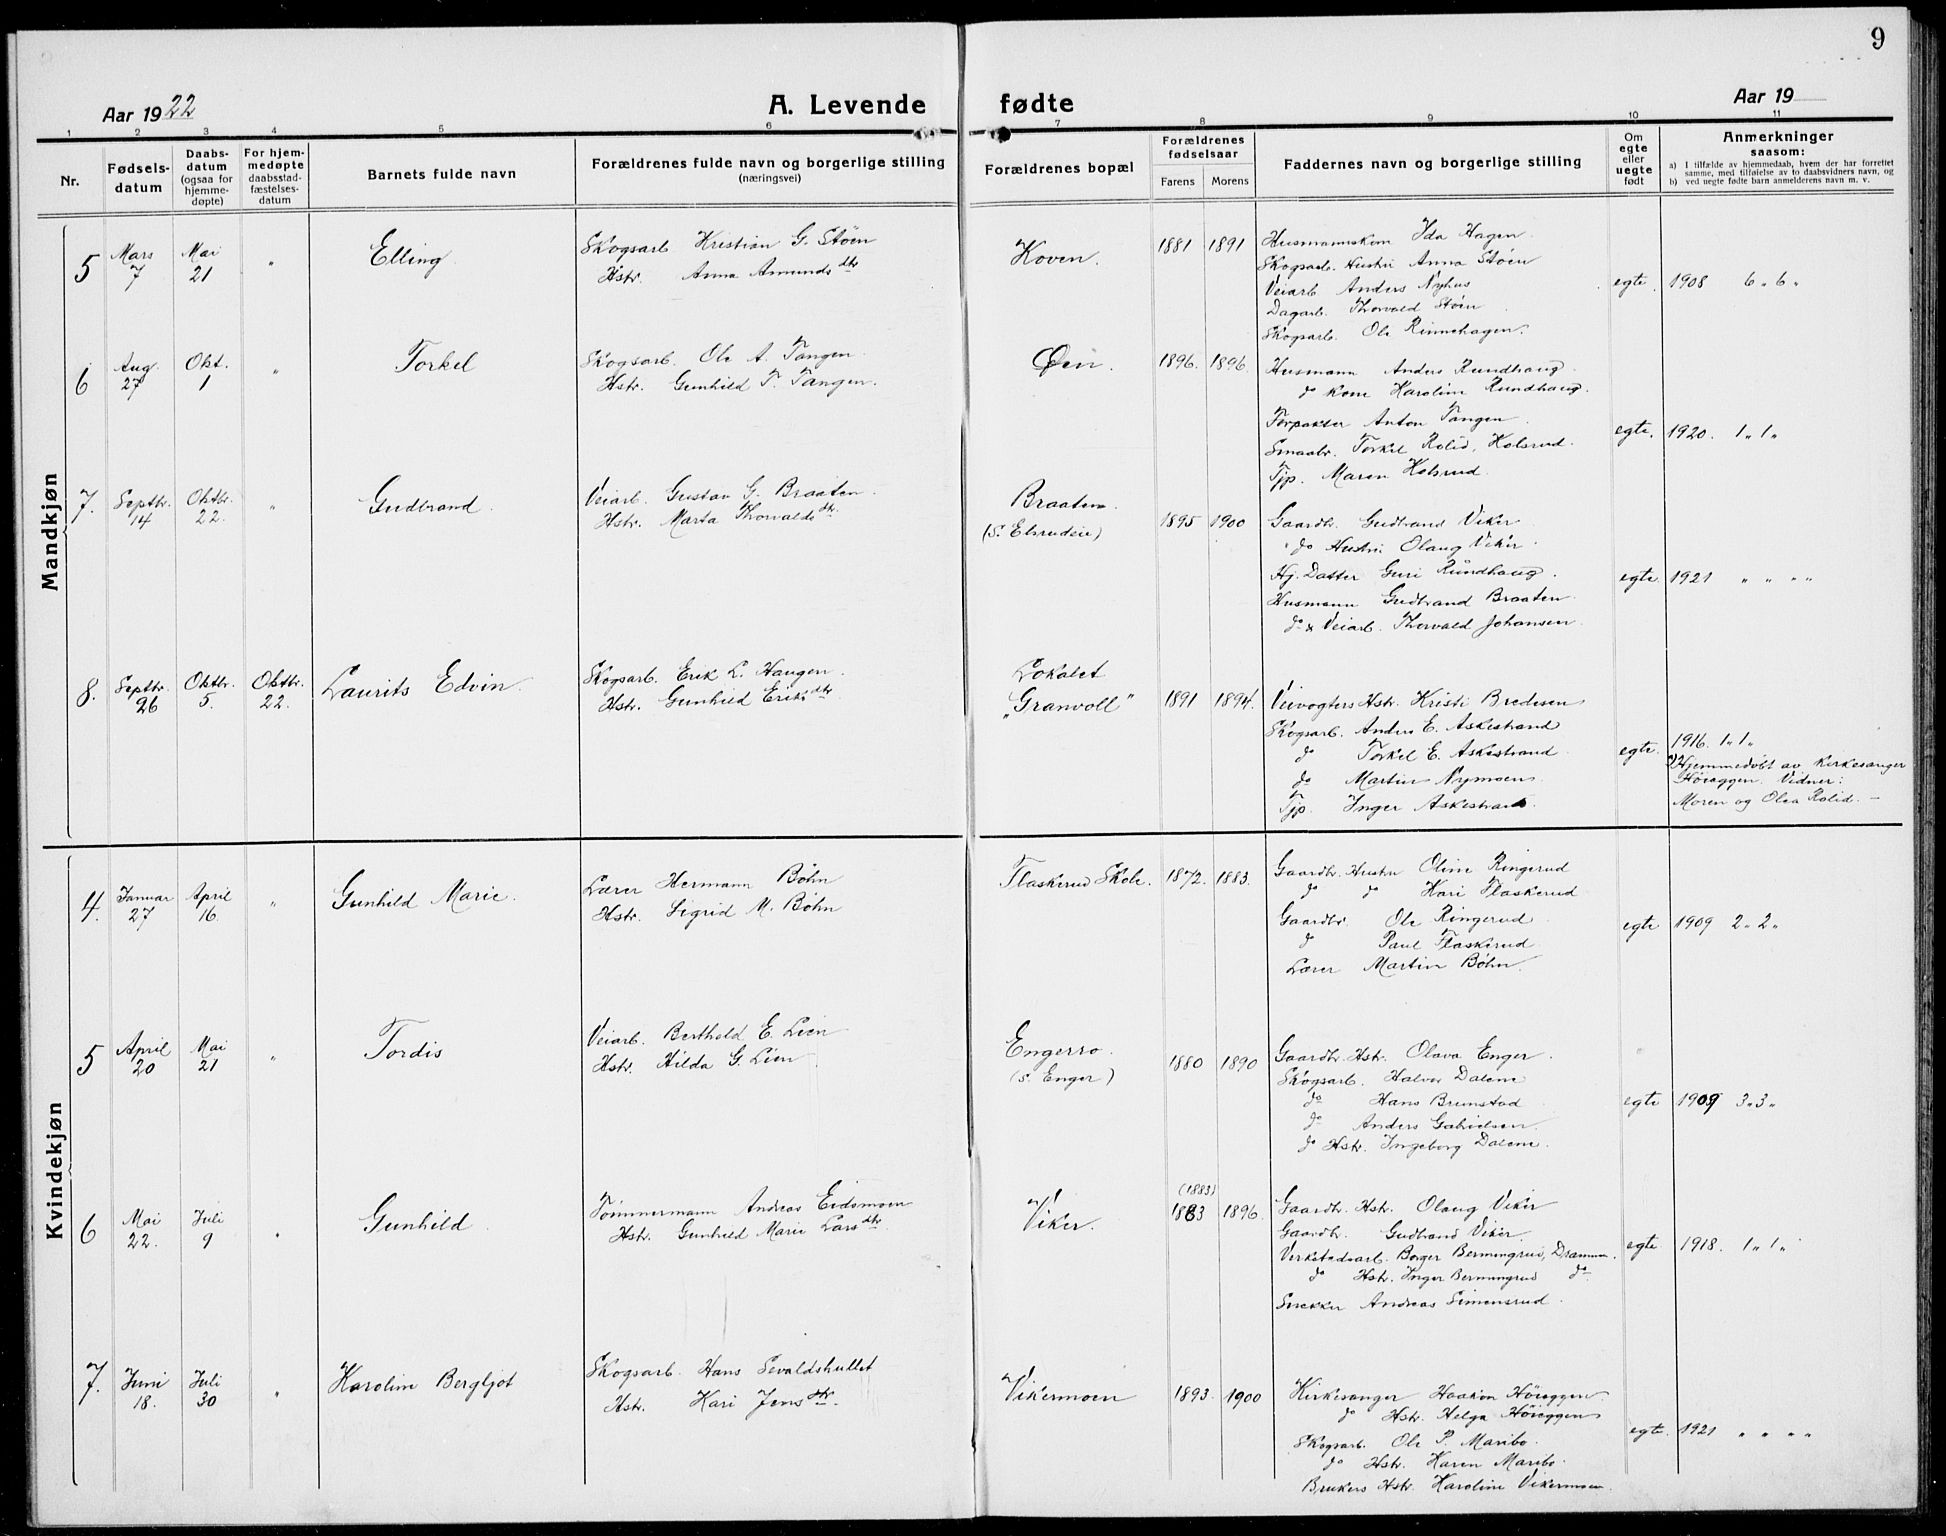 9
Aar 1922 A. Levende fødte Aar 19
1 2 3 4 5 6 7 8 9 10 11
Nr.
Fødsels-
datum
Daabs-
datum
(ogsaa for
hjemme-
døpte)
For hjem-
medøpte
daabsstad-
fæstelses-
datum
Barnets fulde navn
Forældrenes fulde navn og borgerlige stilling
(næringsvei)
Forældrenes bopæl
Forældrenes
fødselsaar
Farens Morens
Faddernes navn og borgerlige stilling
Om
egte
eller
uegte
født
Anmerkninger
saasom:
a) I tilfælde av hjemmedaab, hvem der har forrettet
samme, med tilføielse av to daabsvidners navn, og
b) ved uegte fødte barn anmelderens navn m. v.
Mandkjøn
5 Mars 7 Mai 21 " Elling
Skogsarb. Kristian G. Støen
Hstr. Anna Amundsdtr
Koven. 1881 1891
Husmannskone Ida Hagen
Skogsarb. Hustru Anna Støen
Veiarb. Anders Nyhus
Dagarb. Thorvald Støen
Skogsarb. Ole Rinnehagen.
egte. 1908 6 " 6 "
6 Aug. 27 Okt. 1 " Torkel
Skogsarb. Ole A. Tangen.
Hstr. Gunhild T. Tangen.
Øen. 1896. 1896.
Husmann Anders Rundhaug.
do kone Karoline Rundhaug.
Forpakter Anton Tangen
Smaabr. Torkel Rolid, Holsrud.
Tjp. Maren Holsrud.
egte. 1920. 1 " 1 "
7. Septbr. 14 Oktbr. 22. " Gudbrand
Veiarb. Gustav G. Braaten.
Hstr. Marta Thorvaldsdtr.
Braaten
(S. Elsrudeie)
1895 1900
Gaardbr. Gudbrand Viker
" do Hustru Olaug Viker.
Hj. Datter Guri Rundhaug.
Husmann Gudbrand Braaten.
do & Veiarb. Thorvald Johansen.
egte. 1921 " " " "
8. Septbr. 26 Oktbr. 5. Oktbr. 22. Laurits Edvin.
Skogsarb. Erik L. Haugen.
Hstr. Gunhild Eriksdtr
Lokalet
"Granvoll"
1891 1894.
Veivogters Hstr. Kristi Bredesen
Skogsarb. Anders E. Askestrand
do Torkel E. Askestrand
do Martin Nymoen.
Tjp. Inger Askestrand.
egte. 1916. 1 " 1 "
Hjemmedøbt av Kirkesanger
Høieggen. Vidner:
Moren og Olea Rolid. —
Kvindekjøn
4. Januar 27 April 16. " Gunhild Marie.
Lærer Hermann Bøhn
Hstr. Sigrid M. Bøhn
Flaskerud Skole. 1872. 1883.
Gaardbr. Hustru Oline Ringerud
do do Kari Flaskerud
Gaardbr. Ole Ringerud
do Paul Flaskerud.
Lærer Martin Bøhn.
egte 1909 2 " 2 "
5 April 20 Mai 21 " Tordis
Veiarb. Berthold E. Lien
Hstr. Hilda G. Lien.
Engerro.
(S. Enger)
1880 1890
Gaardbr. Hstr. Olava Enger.
Skogsarb. Halvor Dalene
do Hans Brunstad
do Anders Gabrielsen.
do Hstr. Ingeborg Dalene.
egte 1909 3 " 3 "
6 Mai 22. Juli 9 " Gunhild.
Tømmermann Andreas Eidsmoen
Hstr. Gunhild Marie Larsdtr.
Viker. (1883)
1883 1896.
Gaardbr. Hstr. Olaug Viker
Gaardbr. Gudbrand Viker.
Verkstedsarb. Borger Bermingrud, Drammen.
do Hstr. Inger Bermingrud do
Snekker Andreas Simensrud.
egte. 1918. 1 " 1 "
7. Juni 18. Juli 30 " Karoline Bergljot
Skogsarb. Hans Sevaldshullet
Hstr. Kari Jensdtr.
Vikermoen 1893. 1900
Kirkesanger Haakon Høieggen.
do Hstr. Helga Høieggen
Skogsarb. Ole P. Maribo.
do Hstr. Karen Maribo.
Brukers Hstr. Karoline Vikermoen.
egte. 1921 " " " "